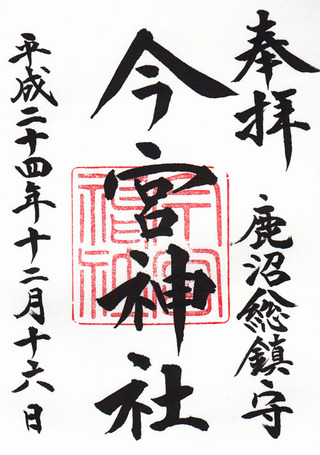 奉拝
鹿沼総鎮守
今宮神社
平成二十四年十二月十六日